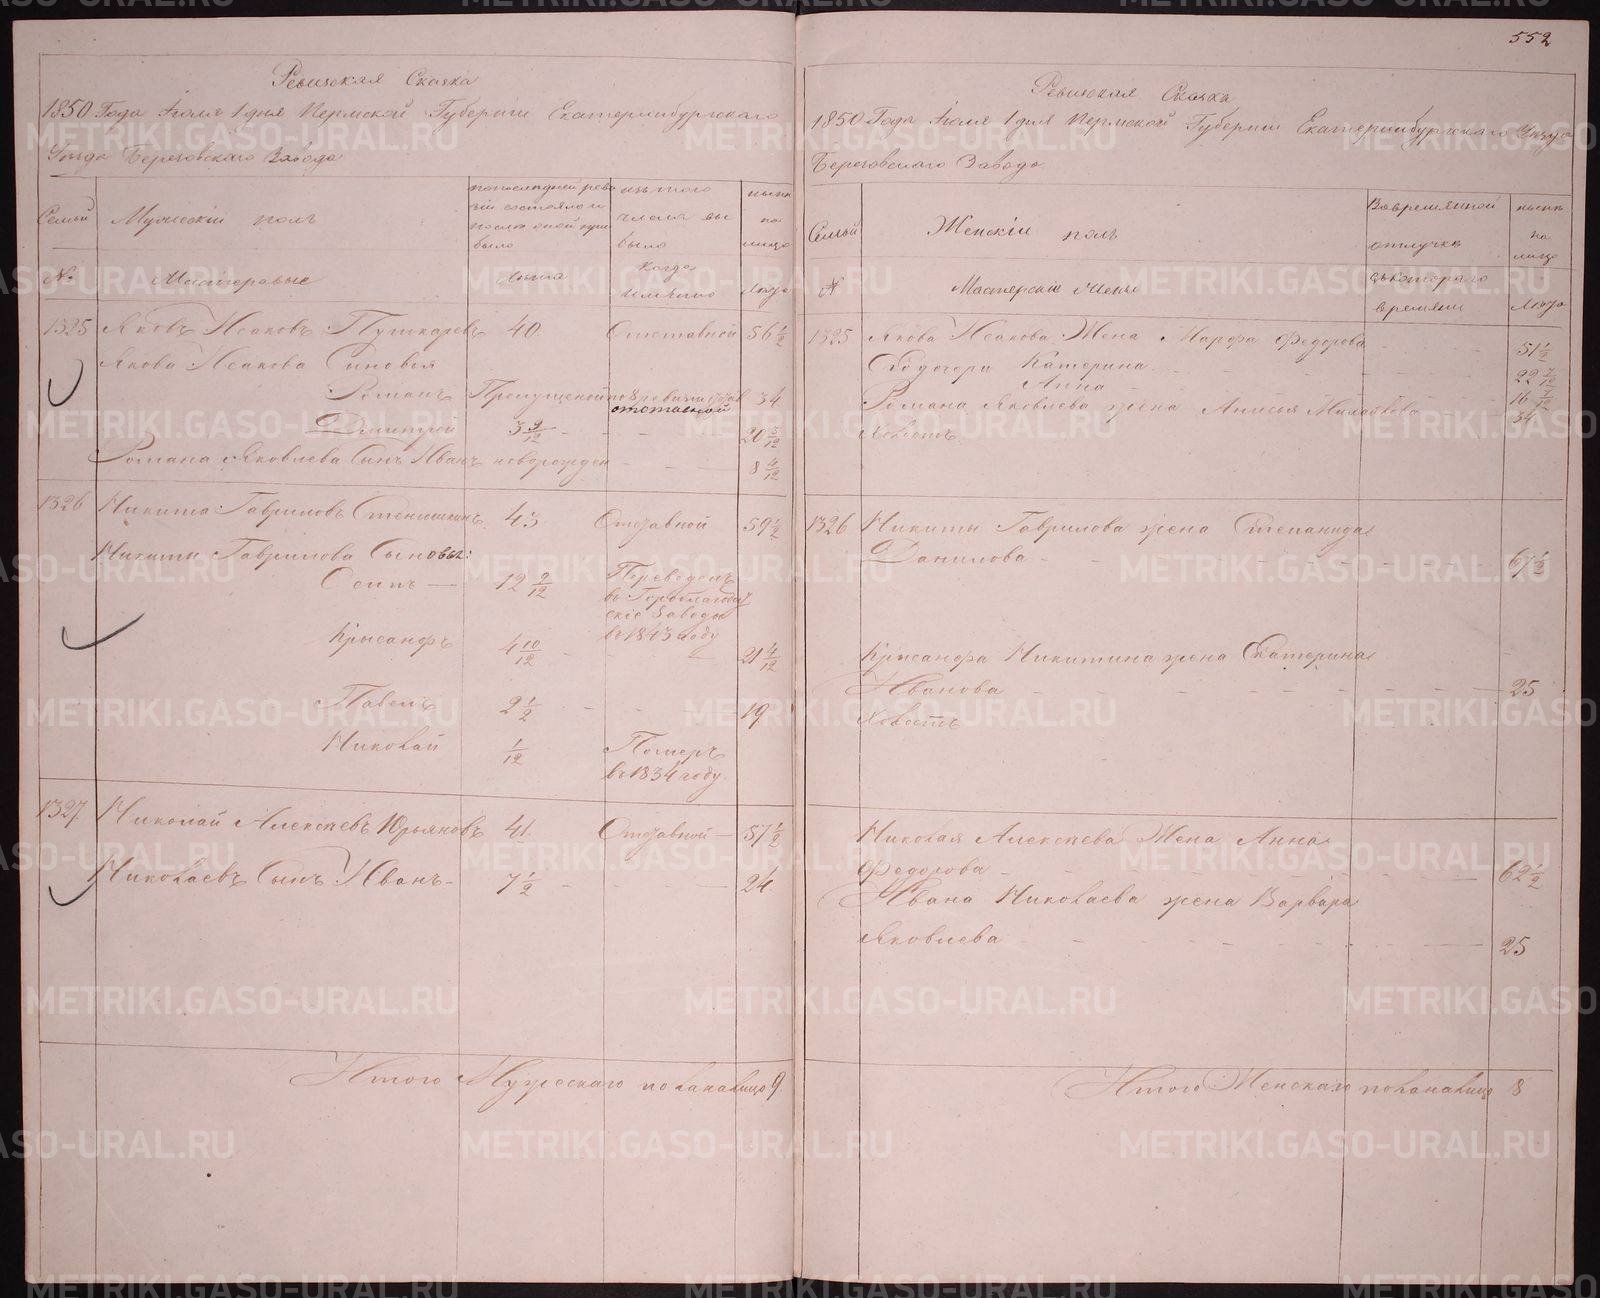 552
Ревизская Сказка
1850 Года Июля 1 дня Пермской Губернии Екатеринбургского
Уезда Березовскаго Завода
Семьи
Мужескій полъ
по последней реви
зіи состояло и
после оной при
было
изъ того
числа вы
было
ныне
на
лицо
№
Мастеровые
Лета
Когда
имянно
Лета
1325
Яковъ Исаковъ Пушкаревъ
40.
Отставной
56 1/2
Якова Исакова Сыновья
Романъ
Пропущеной по 8 ревизіи
отставной
34
Дмитрей
3 9/12
20 3/12
Романа Яковлева Сынъ Иванъ
новорожден
8 4/12
1326
Никита Гавриловъ Стенишкинъ
43
Отставной
59 1/2
Никиты Гаврилова Сыновья:
Осипъ
12 9/12
Переведенъ
въ Гороблагодат
скіе Заводы
въ 1843 году
Крысанфъ
4 10/12
21 4/12
Павелъ
2 1/2
19
Николай
1/12
Померъ
въ 1834 году
1327
Николай Алексеевъ Юрьяновъ
41.
Отставной
57 1/2
Николаевъ Сынъ Иванъ
7 1/2
24
Итого Мужескаго пола налицо 9.
Ревизская Сказка
1850 Года Июля 1 дня Пермской Губернии Екатеринбургского Уезда
Березовскаго Завода
Семьи
Женскій полъ
Во временной
отлучке
ныне
на
лицо
№
Мастерскіе Жены
съ котораго
времяни
Лета
1325
Якова Исакова Жена Марфа Федорова
51 1/2
Ево дочери Катерина
22 7/12
Анна
16 7/12
Романа Яковлева жена Анисья
34
Холостъ
1326
Никиты Гаврилова жена Степанида
Данилова
67 1/2
Крысанфа Никитина жена Екатерина
Иванова
25
Холостъ
Николая Алексеева Жена Анна
Федорова
62 1/2
Ивана Николаева жена Варвара
Яковлева
25
Итого Женскаго пола налицо 8
METRIKI.GASO-URAL.RU